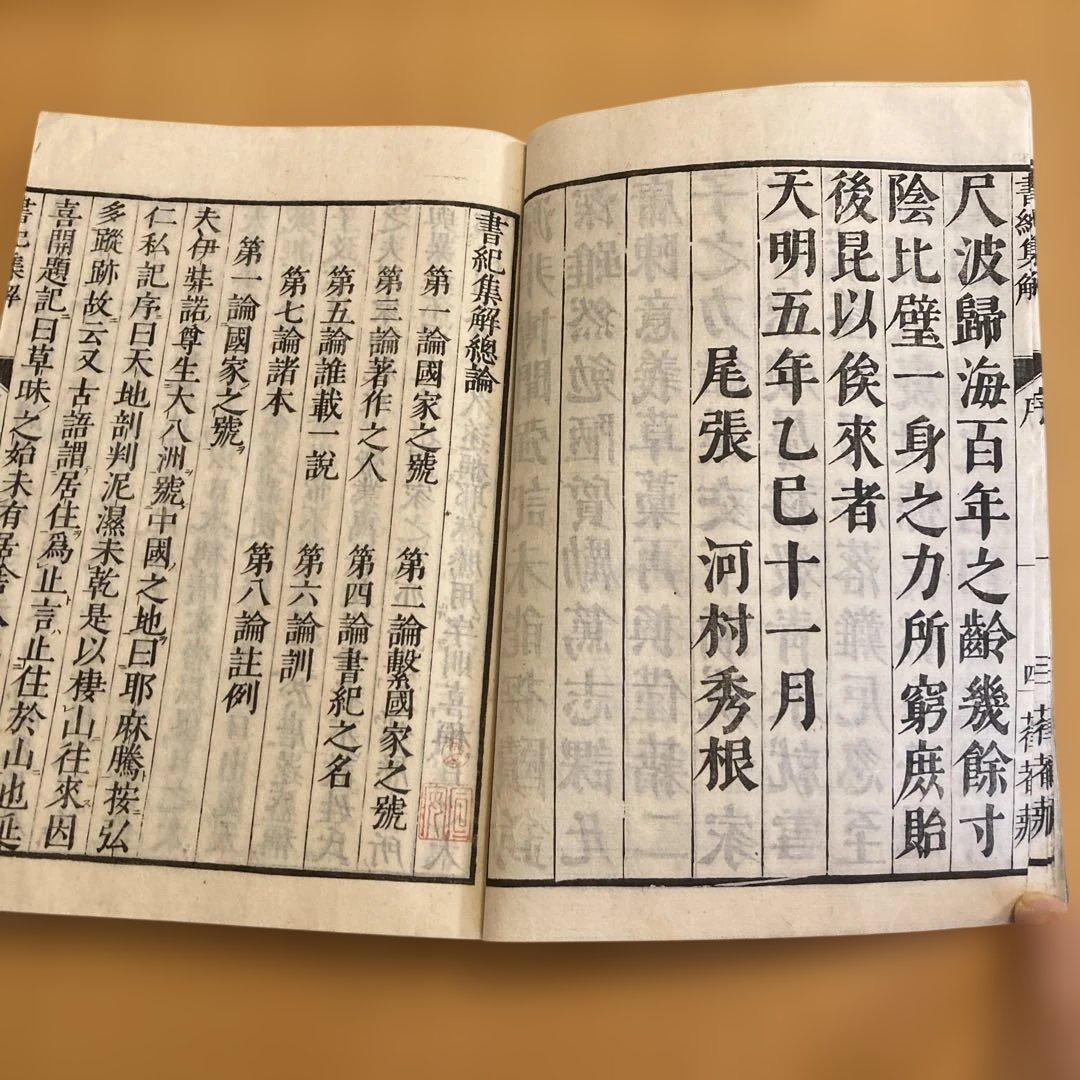 書紀集解 序
四 葎菴藏
尺波歸海百年之齡幾餘寸
陰比璧一身之力所窮庶貽
後昆以俟來者
天明五年乙巳十一月
尾張 河村秀根
書紀集解總論
第一論國家之號 第二論繫國家之號
第三論著作之人 第四論書紀之名
第五論誰載一說 第六論訓
第七論諸本 第八論註例
第一論國家之號
夫伊弉諾尊生大八洲號中國之地曰耶麻騰按弘
仁私記序曰天地剖判泥濕未乾是以樓山往來因
多蹤跡故云又古語謂居住爲止言止住於山也延
喜開題記曰草昧之始未有居舍
書紀集解